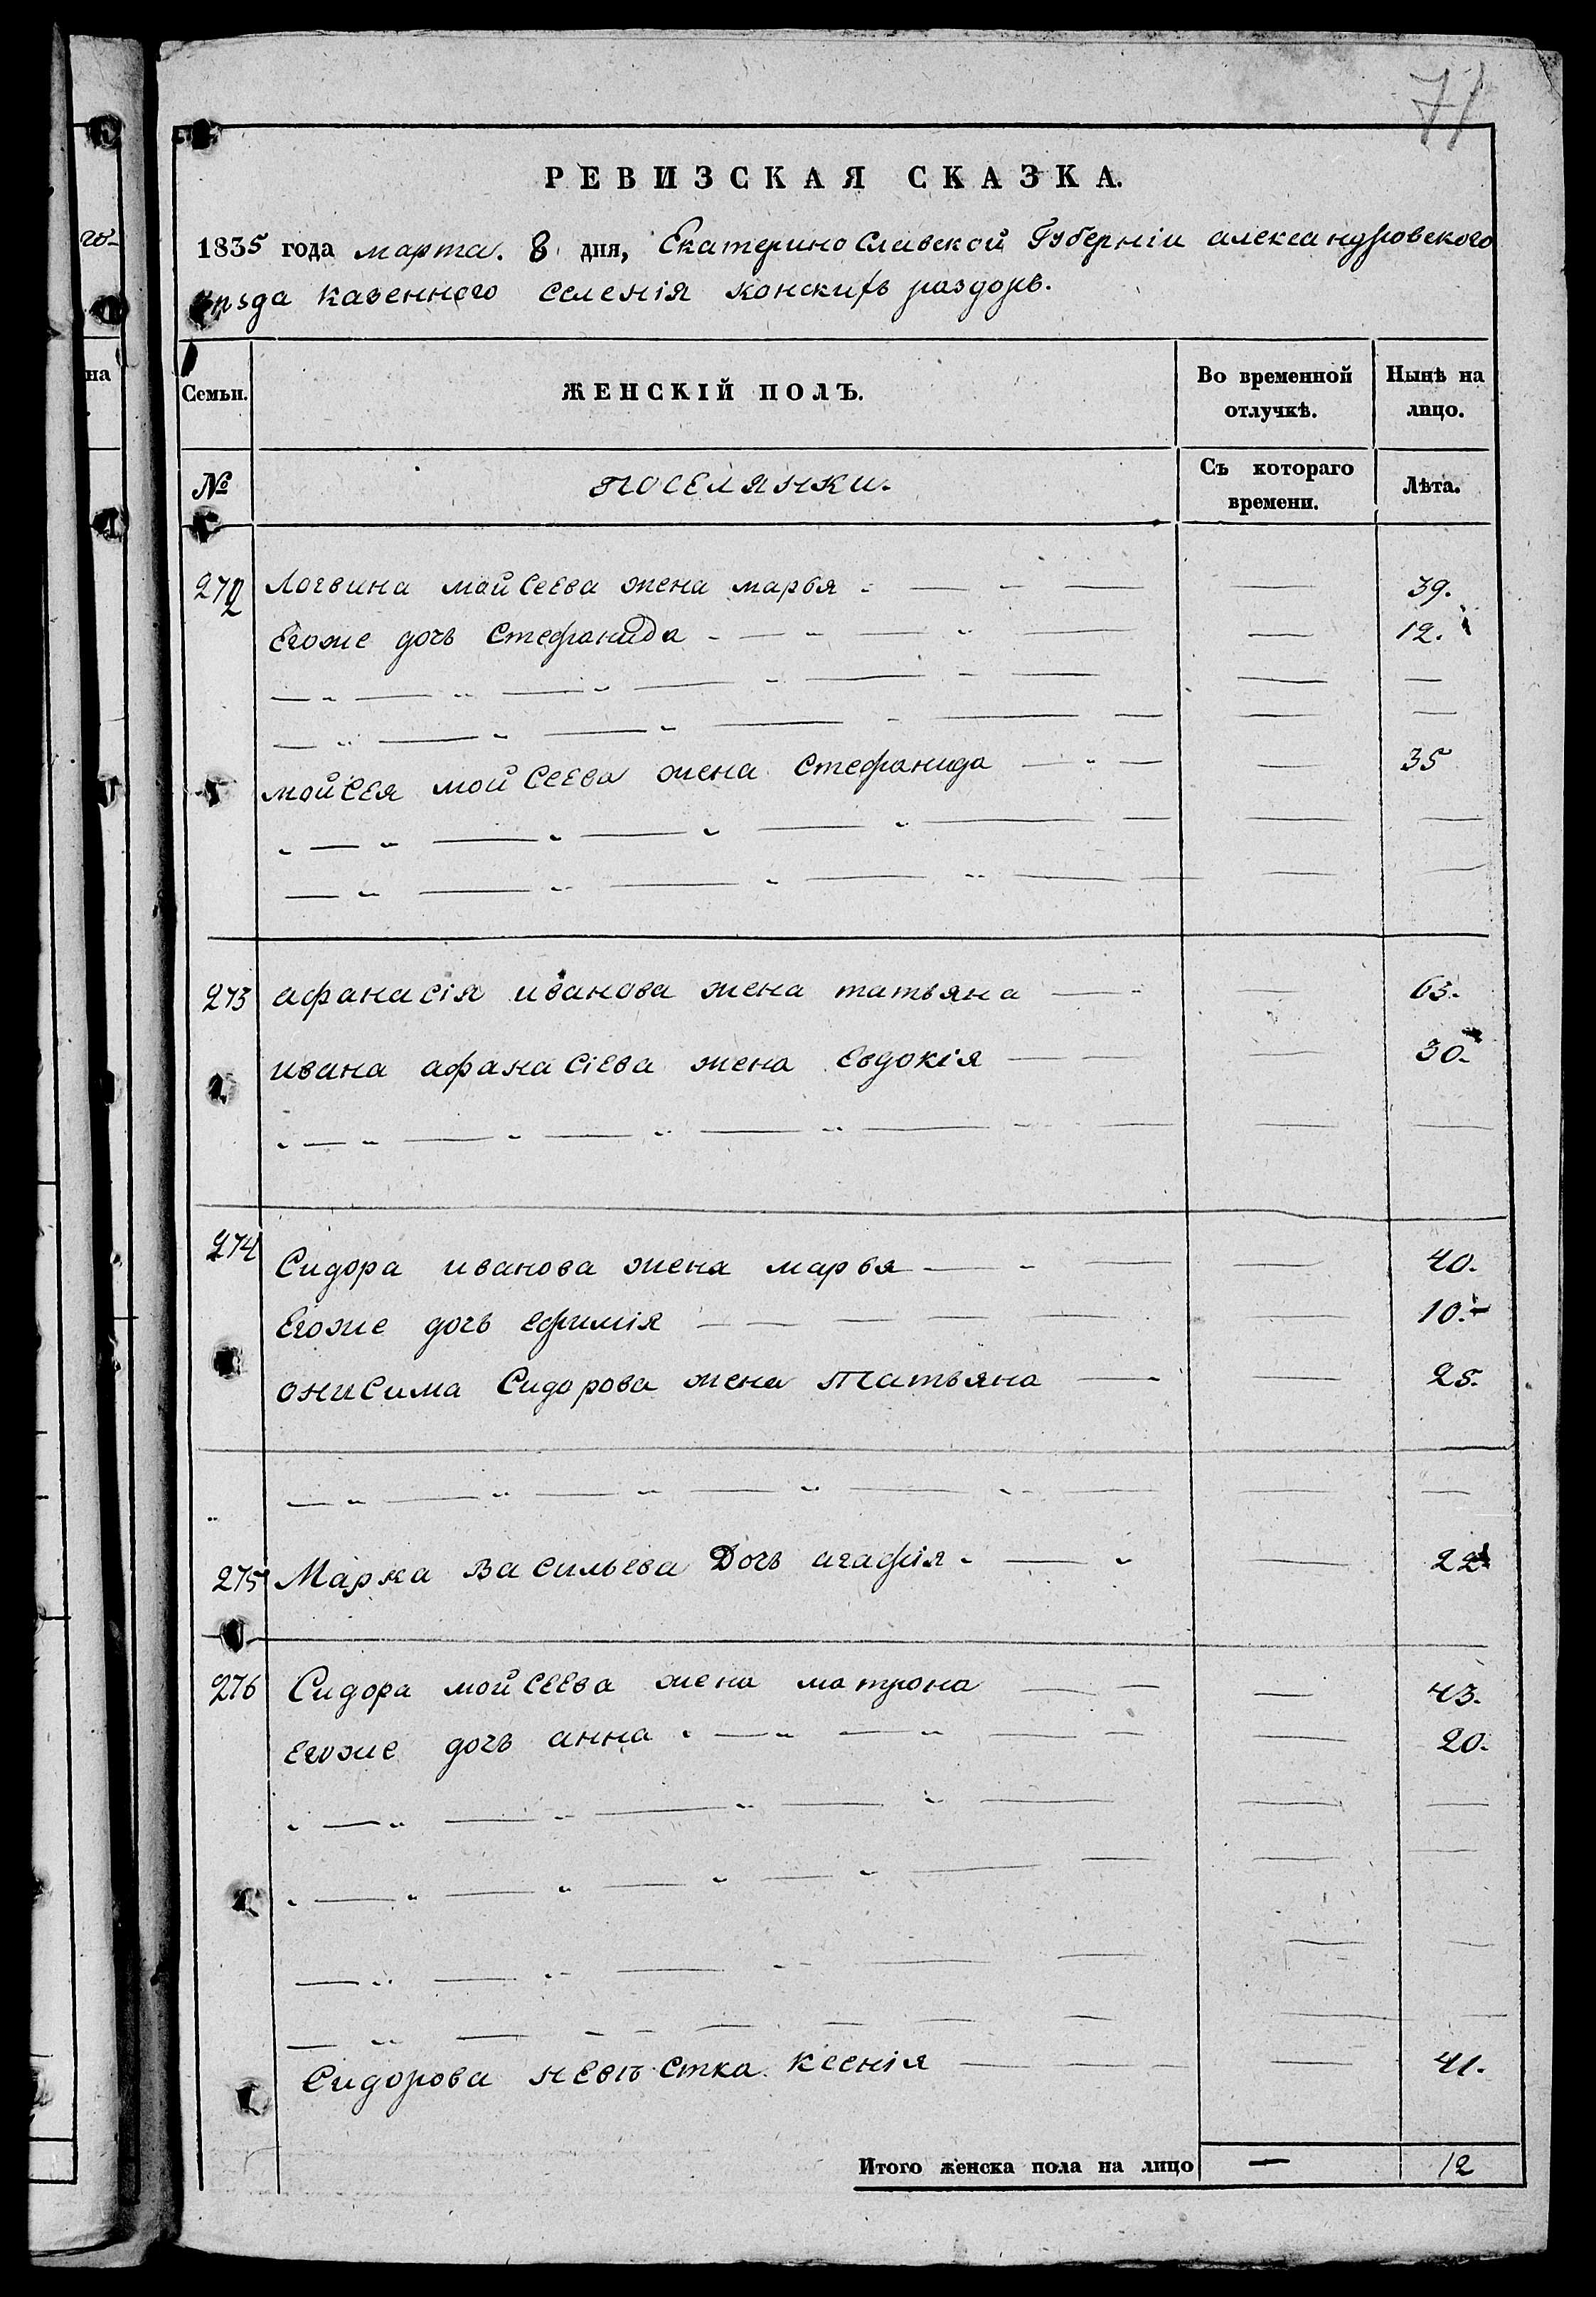 71
РЕВИЗСКАЯ СКАЗКА.
1835 года марта. 8 дня, Екатеринославской Губерніи александровского
уѣзда казенного селенія конскихъ раздоръ.
Семьи.
ЖЕНСКІЙ ПОЛЪ.
Во временной отлучкѣ.
Нынѣ на лицо.
№
поселянки.
Съ котораго времени.
Лѣта.
272 Логвина мойсеева жена марья — — 39.
Егоже дочь Стефанида — — 12.
мойсея мойсеева жена Стефанида — — 35
273 афанасія иванова жена татьяна — — 63.
ивана афанасіева жена Евдокія — — 30.
274 Сидора иванова жена марья — — 40.
Егоже дочь ефимія — — 10.
онисима Сидорова жена Татьяна — — 25.
275 Марка васильева Дочь агафія — — 22
276 Сидора мойсеева жена матрона — — 43.
Егоже дочь анна — — 20.
Сидорова невѣстка ксенія — — 41.
Итого женска пола на лицо — 12
го-
на